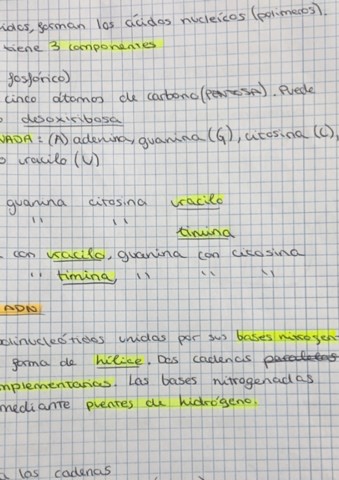 forman los ácidos nucleicos (polímeros).
tiene 3 componentes
fosfórico)
cinco átomos de carbono (PENTOSA). Puede
desoxirribosa
NADA: (A) adenina, guanina (G), citosina (C),
o uracilo (U)
guanina citosina uracilo
" " timina
con uracilo, guanina con citosina
" timina, " " "
ADN
unidas por sus bases nitrogen-
forma de hélice. Dos cadenas
mplementarias. Las bases nitrogenadas
mediante puentes de hidrógeno.
a las cadenas